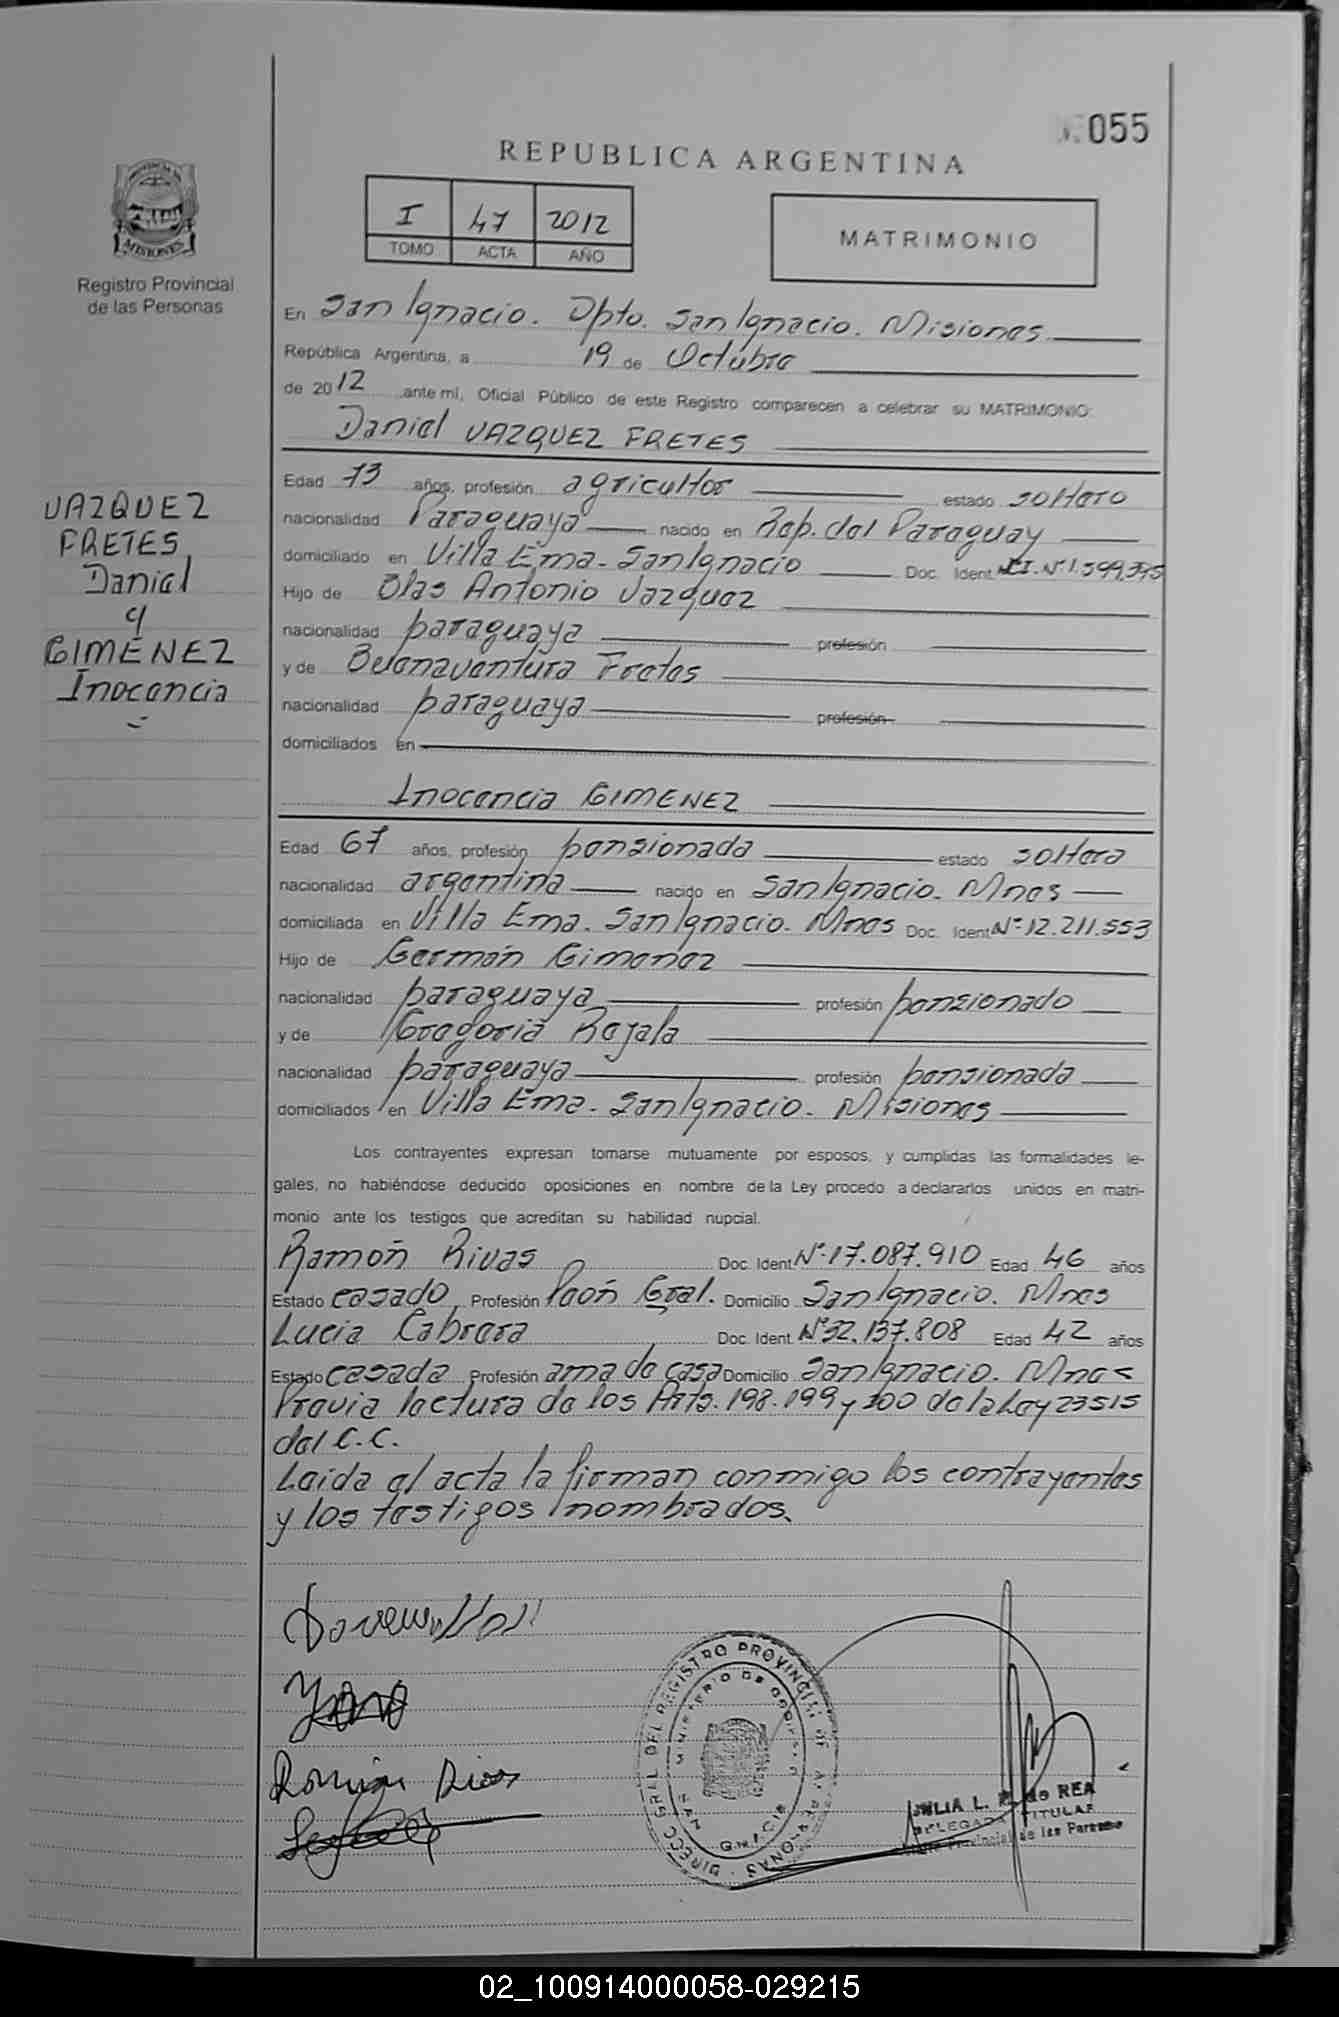 055
REPUBLICA ARGENTINA
I 47 2012
TOMO ACTA AÑO
MATRIMONIO
MISIONES
Registro Provincial
de las Personas
En San Ignacio. Dpto. San Ignacio. Misiones
República Argentina, a 19 de Octubre
de 2012 ante mi, Oficial Público de este Registro comparecen a celebrar su MATRIMONIO:
Daniel VAZQUEZ FRETES
VAZQUEZ
FRETES,
Daniel
y
GIMENEZ
Inocencia
Edad 73 años, profesión agricultor estado soltero
nacionalidad Paraguaya nacido en Rep. del Paraguay
domiciliado en Villa Ema. San Ignacio Doc. Ident. C.I. Nº 1.599.395
Hijo de Blas Antonio Vazquez
nacionalidad paraguaya profesión
y de Buenaventura Fretes
nacionalidad paraguaya profesión
domiciliados en
Inocencia GIMENEZ
Edad 67 años, profesión pensionada estado soltera
nacionalidad argentina nacido en San Ignacio. Mnes
domiciliada en Villa Ema. San Ignacio. Mnes Doc. Ident Nº 12.211.553
Hijo de Germán Gimenez
nacionalidad paraguaya profesión pensionado
y de Gregoria Rajala
nacionalidad paraguaya profesión pensionada
domiciliados en Villa Ema. San Ignacio. Misiones
Los contrayentes expresan tomarse mutuamente por esposos, y cumplidas las formalidades le-
gales, no habiéndose deducido oposiciones en nombre de la Ley procedo a declararlos unidos en matri-
monio ante los testigos que acreditan su habilidad nupcial.
Ramón Rivas Doc. Ident Nº 17.087.910 Edad 46 años
Estado casado Profesión Peón Gral. Domicilio San Ignacio. Mnes
Lucia Cabrera Doc. Ident. Nº 32.137.808 Edad 42 años
Estado casada Profesión ama de casa Domicilio San Ignacio. Mnes
Previa lectura de los Arts. 198. 199 y 200 de la Ley 23515
del C.C.
Leida el acta la firman conmigo los contrayentes
y los testigos nombrados.
DIRECC GRAL. DEL REGISTRO PROVINCIAL DE
MINISTERIO DE GOBIERNO
SAN IGNACIO
JULIA L. de REA
DELEGADA TITULAR
Provincial de las Personas
02_100914000058-029215